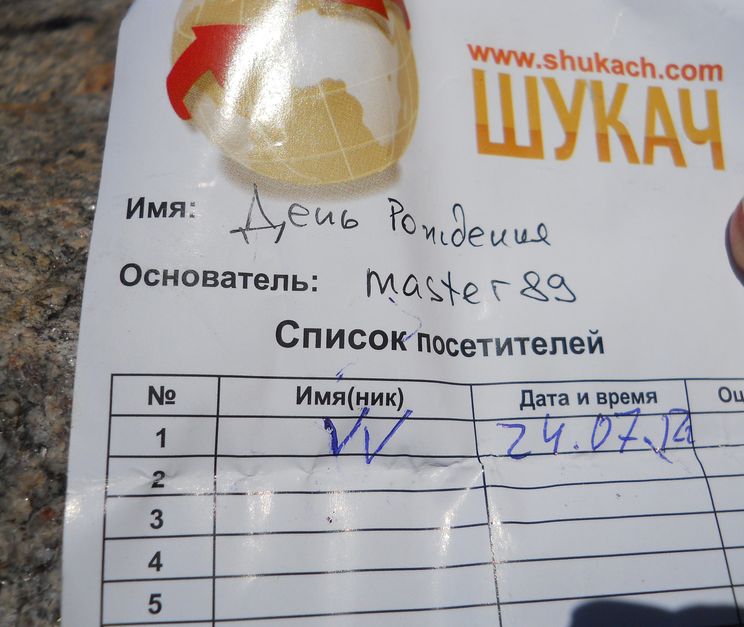 www.shukach.com
ШУКАЧ
Имя: День Рождения
Основатель: master89
Список посетителей
№ Имя(ник) Дата и время
1 VV 24.07.12
2
3
4
5